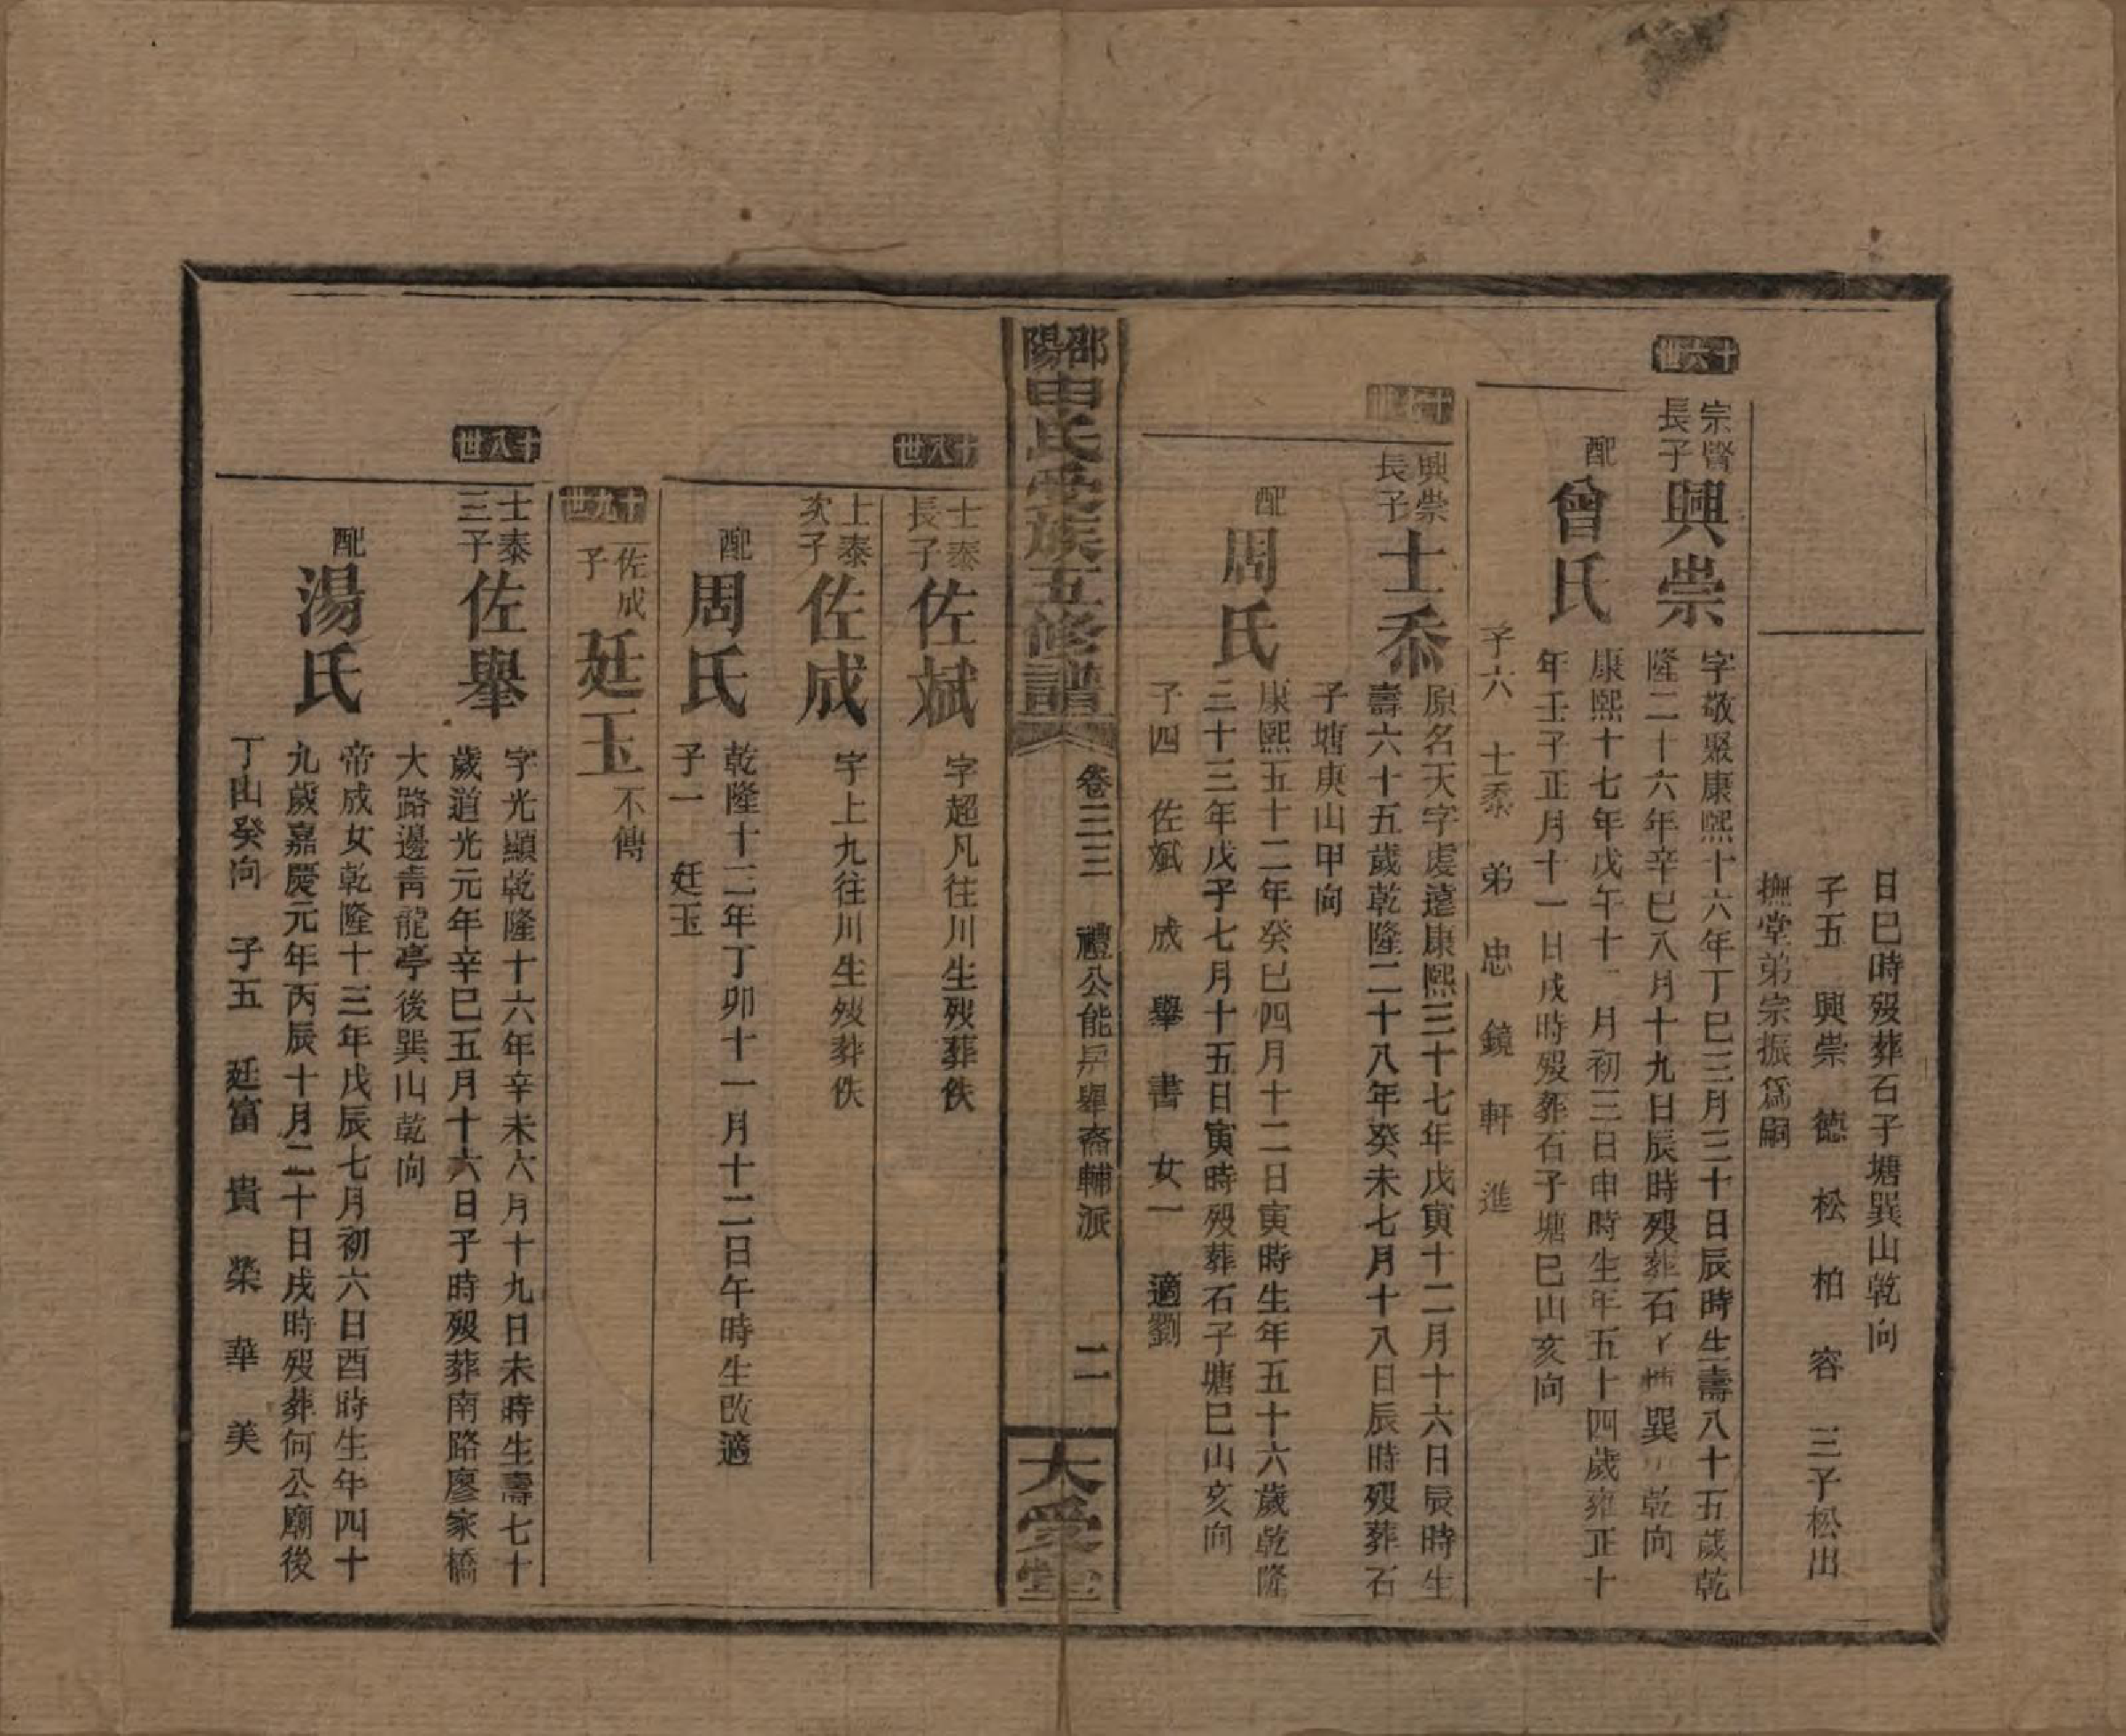 日巳時歿葬石子塘巽山乾向
子五　興崇　德　松　柏　容　三子松出
撫堂弟宗振爲嗣
十六世
宗賢
長子
興崇
字敬聚康熙十六年丁巳三月三十日辰時生壽八十五歲乾
隆二十六年辛巳八月十九日辰時歿葬石子塘巽山乾向
配
曾氏
康熙十七年戊午十一月初三日申時生年五十四歲雍正十
年壬子正月十一日戌時歿葬石子塘巳山亥向
子六　士泰　弟　忠　鏡　軒　進
十七世
興崇
長子
士泰
原名天字虔遠康熙三十七年戊寅十二月十六日辰時生
壽六十五歲乾隆二十八年癸未七月十八日辰時歿葬石
子塘庚山甲向
配
周氏
康熙五十二年癸巳四月十二日寅時生年五十六歲乾隆
三十三年戊子七月十五日寅時歿葬石子塘巳山亥向
子四　佐斌　成　舉　書　女一　適劉
邵陽申氏受族五修譜
卷三三　禮公能昇舉裔輔派
二
大受堂
十八世
士泰
長子
佐斌
字超凡往川生歿葬佚
士泰
次子
佐成
字上九往川生歿葬佚
配
周氏
乾隆十二年丁卯十一月十二日午時生改適
子一　廷玉
十九世
佐成
子
廷玉
不傳
十八世
士泰
三子
佐舉
字光顯乾隆十六年辛未六月十九日未時生壽七十
歲道光元年辛巳五月十六日子時歿葬南路廖家橋
大路邊青龍亭後巽山乾向
配
湯氏
帝成女乾隆十三年戊辰七月初六日酉時生年四十
九歲嘉慶元年丙辰十月二十日戌時歿葬何公廟後
丁山癸向　子五　廷富　貴　榮　華　美